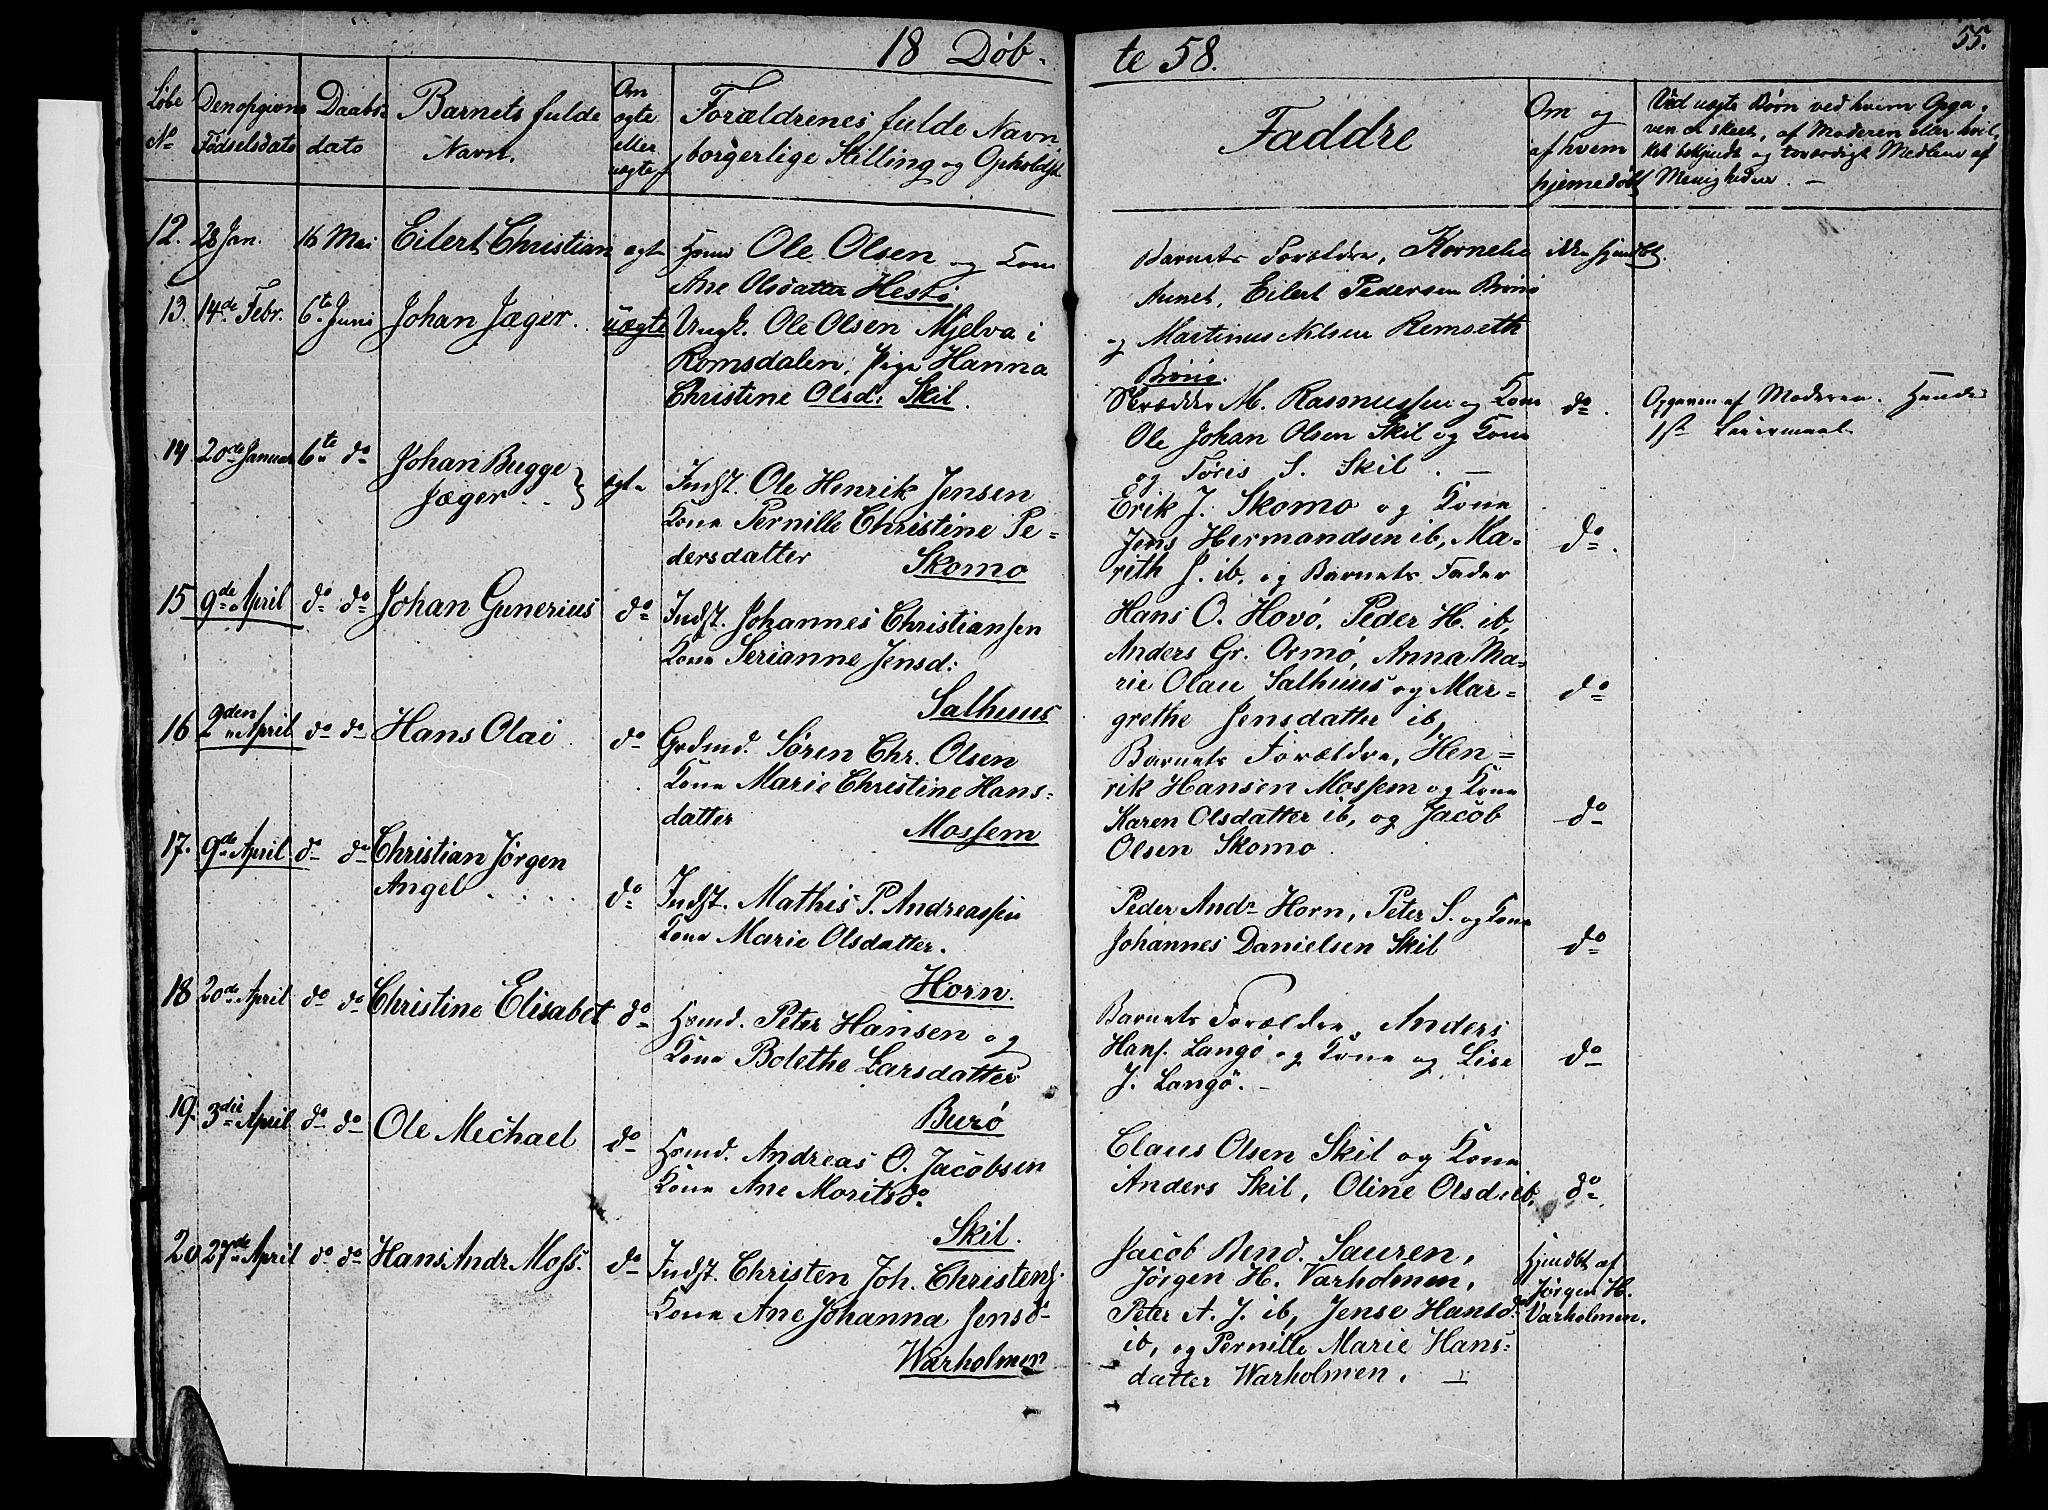 18 Døb-
te 58.
55.
Løbe
No
Den opgivne
Fødselsdato
Daabs-
dato
Barnets fulde
Navn.
Om
ægte
eller
uægte
Forældrenes fulde Navn
borgerlige Stilling og Opholdsst
Faddre
Om og
af hvem
hjemmedøbt
Ved uægte Børn ved hvem Opga-
ven er skeet, af Moderen eller hvil-
ket bekjendt og troværdigt Medlem af
Menigheden. —
12. 28 Jan. 16 Mai Eilert Christian ægt Hsmd Ole Olsen og Kone
Ane Olsdatter Hestø
Barnets Forældre, Kornelia
Aunet, Eilert Pedersen Brønø
og Martinus Nilsen Remseth
Brønø.
ikke hjemdbt.
13. 14de Febr. 6te Juni Johan Jæger. uægte Ungk. Ole Olsen Mjelva i
Romsdalen, Pige Hanna
Christine Olsd: Skil.
Skrædder M. Rasmussen og Kone
Ole Johan Olsen Skil og Kone
og Føris S. Skil. —
do.
Opgaven af Moderen. Hendes
1ste Leiermaal
14 20de Januar 6te do Johan Bugge
Jæger . .
ægt. Indst. Ole Henrik Jensen
Kone Pernille Christine Pe-
dersdatter Skomo
Erik J. Skomo og Kone
Jens Hermandsen ib, Ma-
rith J. ib. og Barnets Fader
do.
15 9de April do do Johan Gunerius do Indst. Johannes Christiansen
Kone Serianne Jensd:
Salhuus
Hans O. Hovø, Peder H. ib,
Anders Gr. Ormø, Anna Ma-
rie Olau Salhuus og Mar-
grethe Jensdatter ib,
do
16 2den April do do Hans Olai do Grdmd. Søren Chr. Olsen
Kone Marie Christine Hans-
datter Mossem
Barnets Forældre, Hen-
rik Hansen Mossem og Kone
Karen Olsdatter ib, og Jacob
Olsen Skomo
do
17. 9de April do do Christian Jørgen
Angel . . . .
do Indst. Mathis P. Andreassen
Kone Marie Olsdatter.
Horn.
Peder Andr Horn, Peter S. og Kone
Johannes Danielsen Skil
do
18 20de April do do Christine Elisabet do Hsmd. Peter Hansen og
Kone Bolethe Larsdatter
Burø
Barnets Forældre, Anders
Hans. Langø og Kone og Lise
J. Langø. —
do
19. 3die April do do Ole Mechael do Hsmd. Andreas O. Jacobsen
Kone Ane Moritsdo
Skil.
Claus Olsen Skil og Kone
Anders Skil, Oline Olsd ib,
do
20 27de April do do Hans Andr. Moss. do Indst. Christen Joh. Christens.
Kone Ane Johanna Jensdr
Warholmen
Jacob Bend. Sauren,
Jørgen H. Varholmen,
Peter A. J. ib, Jense Hansdr
ib, og Pernille Marie Hans-
datter Warholmen. —
Hjmdbt af
Jørgen H.
Varholmen.